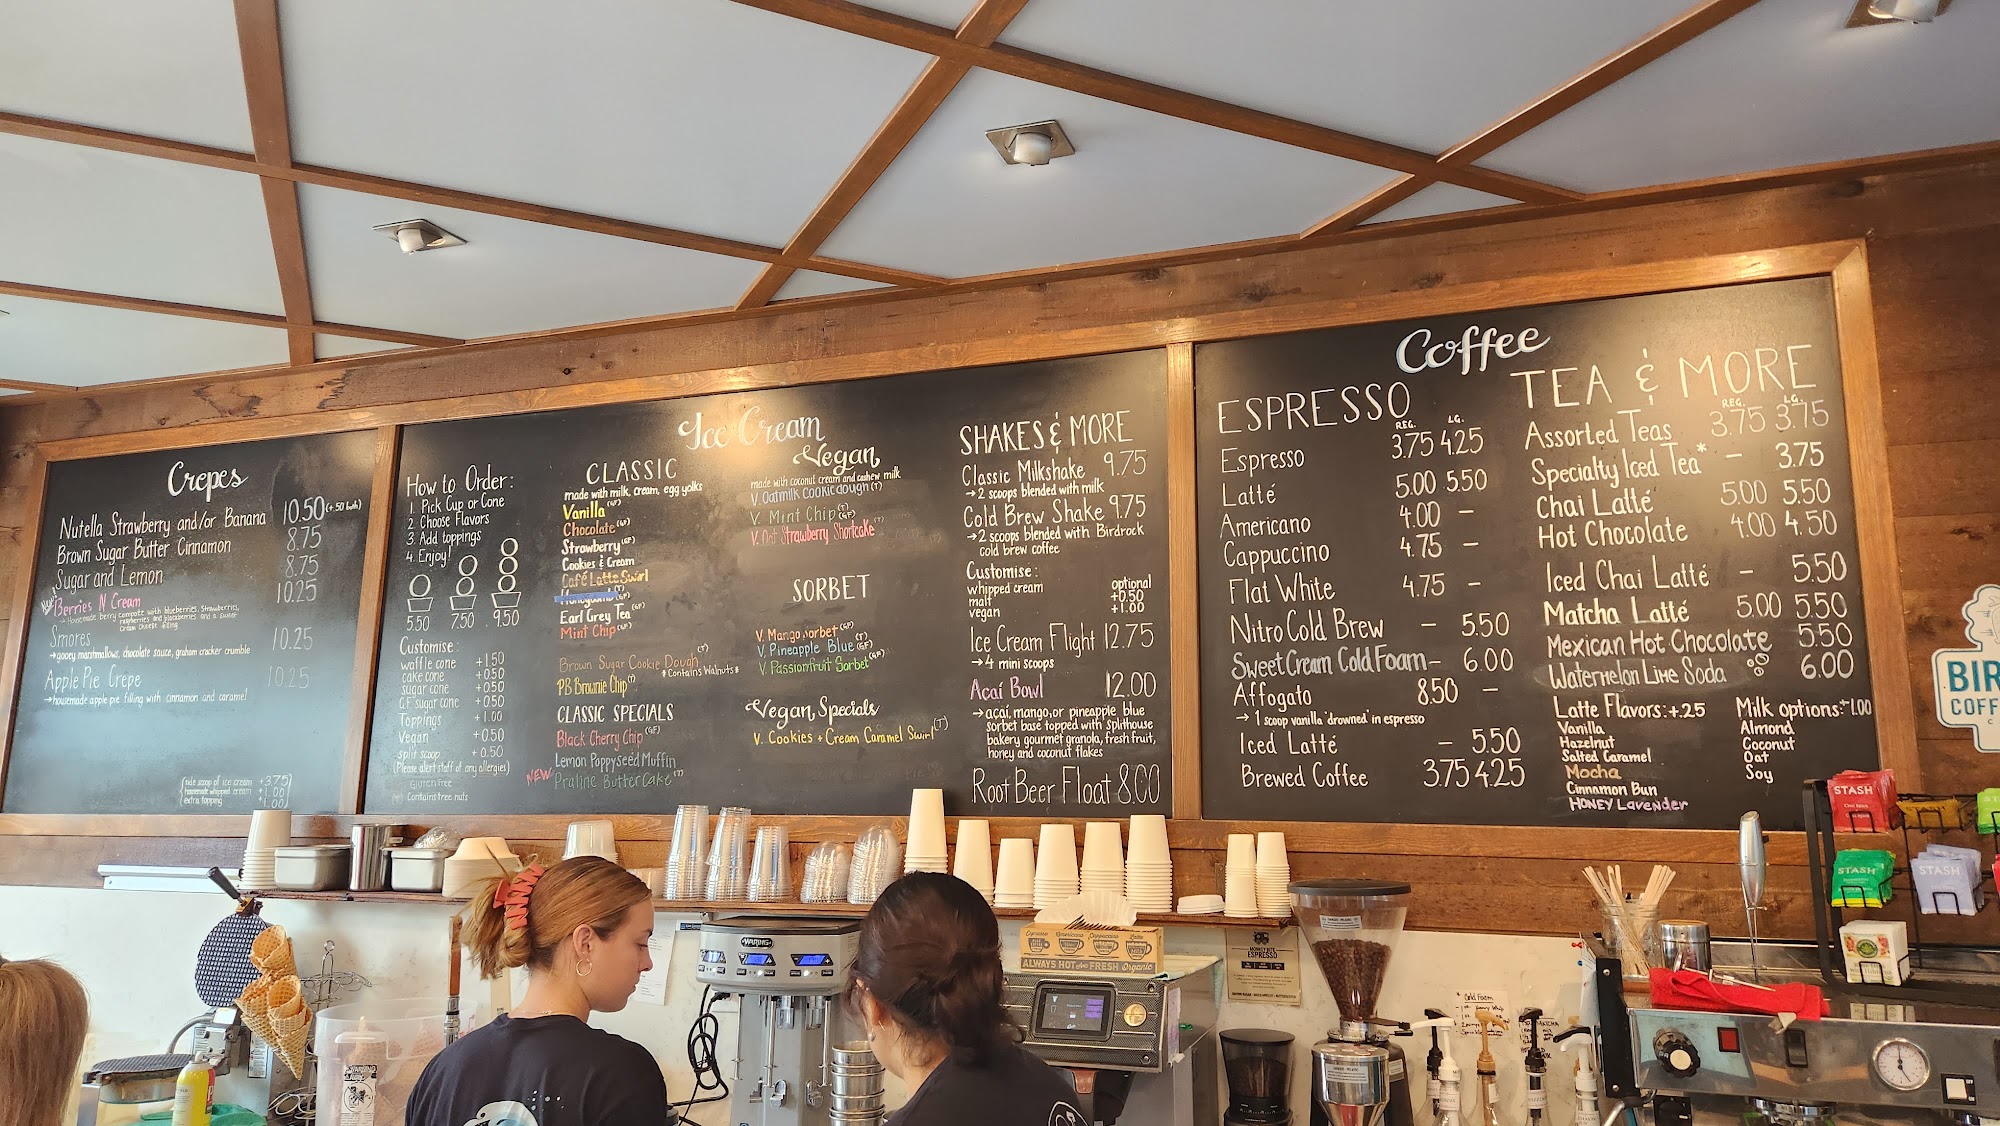 Crepes
Nutella Strawberry and/or Banana 10.50 (+.50 both)
Brown Sugar Butter Cinnamon 8.75
Sugar and Lemon 8.75
New! Berries N Cream 10.25
→ Homemade berry compote with blueberries, strawberries,
raspberries and blackberries and a sweet
cream cheese filling
Smores 10.25
→gooey marshmallows, chocolate sauce, graham cracker crumble
Apple Pie Crepe 10.25
→homemade apple pie filling with cinnamon and caramel
side scoop of ice cream +3.75
homemade whipped cream +1.00
extra topping +1.00
Ice Cream
How to Order:
1. Pick Cup or Cone
2. Choose Flavors
3. Add toppings
4. Enjoy!
5.50 7.50 9.50
Customise:
waffle cone +1.50
cake cone +0.50
sugar cone +0.50
GF sugar cone +0.50
Toppings +1.00
Vegan +0.50
split scoop +0.50
(Please alert staff of any allergies)
Gluten Free
Contains tree nuts
CLASSIC
made with milk, cream, egg yolks
Vanilla (GF)
Chocolate (GF)
Strawberry (GF)
Cookies & Cream
Café Latte Swirl
Honeycomb (T)
Earl Grey Tea (GF)
Mint Chip (GF)
Brown Sugar Cookie Dough (T)
*Contains Walnuts*
PB Brownie Chip (T)
CLASSIC SPECIALS
Black Cherry Chip (GF)
Lemon Poppyseed Muffin
NEW Praline Butter Cake (T)
Vegan
made with coconut cream and cashew milk
V. Oatmilk Cookie dough (T)
V. Mint Chip (T) (GF)
V. Oat Strawberry Shortcake (T)
SORBET
V. Mango Sorbet (GF)
V. Pineapple Blue (T) (GF)
V. Passionfruit Sorbet (GF)
Vegan Specials
V. Cookies + Cream Caramel Swirl (T)
SHAKES & MORE
Classic Milkshake 9.75
→2 scoops blended with milk
Cold Brew Shake 9.75
→2 scoops blended with Birdrock
cold brew coffee
Customise: optional
whipped cream
malt +0.50
vegan +1.00
Ice Cream Flight 12.75
→4 mini scoops
Acaí Bowl 12.00
→acaí, mango, or pineapple blue
sorbet base topped with Splithouse
bakery gourmet granola, fresh fruit,
honey and coconut flakes
Root Beer Float 8.00
Coffee
ESPRESSO
REG. LG.
Espresso 3.75 4.25
Latté 5.00 5.50
Americano 4.00 –
Cappuccino 4.75 –
Flat White 4.75 –
Nitro Cold Brew – 5.50
Sweet Cream Cold Foam – 6.00
Affogato 8.50 –
→ 1 scoop vanilla 'drowned' in espresso
Iced Latté – 5.50
Brewed Coffee 3.75 4.25
TEA & MORE
REG. LG.
Assorted Teas 3.75 3.75
Specialty Iced Tea* – 3.75
Chai Latté 5.00 5.50
Hot Chocolate 4.00 4.50
Iced Chai Latté – 5.50
Matcha Latté 5.00 5.50
Mexican Hot Chocolate 5.50
Watermelon Lime Soda 6.00
Latte Flavors: +.25
Vanilla
Hazelnut
Salted Caramel
Mocha
Cinnamon Bun
Honey Lavender
Milk options: +1.00
Almond
Coconut
Oat
Soy
BIR
COFF
STASH
STASH
STASH
WARING
Espresso Americano Cappuccino Latte
ALWAYS HOT and FRESH Organic
MONKEY BITE
ESPRESSO
Cold Foam